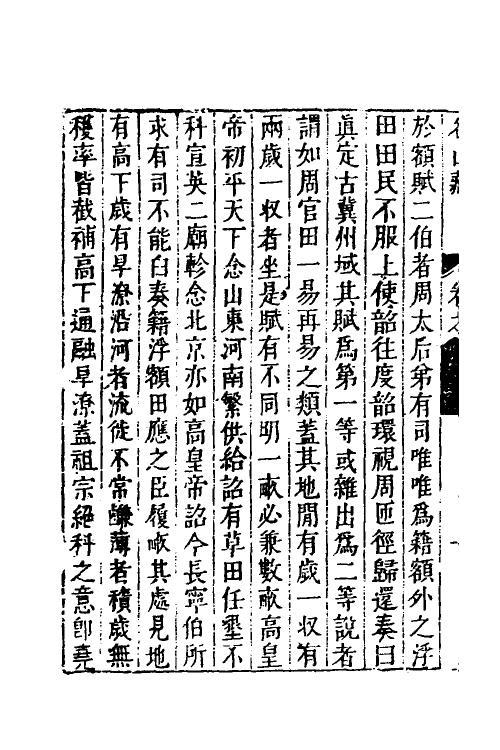 於額賦二伯者周太后弟有司唯唯爲籍額外之浮
田田民不服上使韶往度韶環視周匝徑歸還奏曰
眞定古冀州域其賦爲第一等或雜出爲二等說者
謂如周官田一易再易之類蓋其地閒有歲一収有
兩歲一収者坐是賦有不同明一畝必兼數畝高皇
帝初平天下念山東河南繁供給詔有草田任墾不
科宣英二廟軫念北京亦如高皇帝詔今長寧伯所
求有司不能白奏籍浮額田應之臣履畝其處見地
有高下歲有旱潦沿河者流徙不常鹻薄者積歲無
穫率皆截補高下通融旱潦蓋祖宗絕科之意卽堯